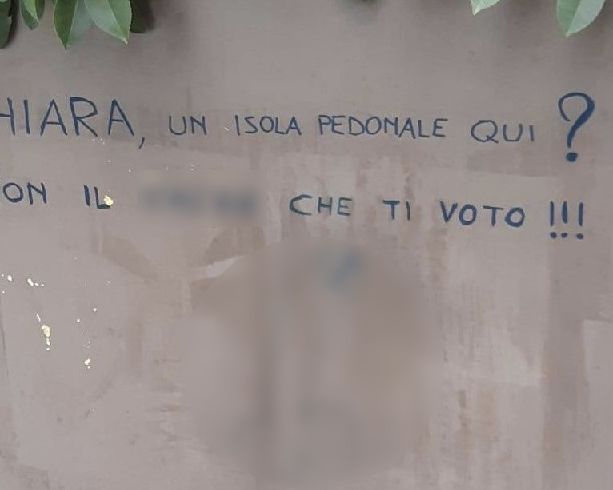 HIARA, UN ISOLA PEDONALE QUI ?
ON IL CHE TI VOTO !!!